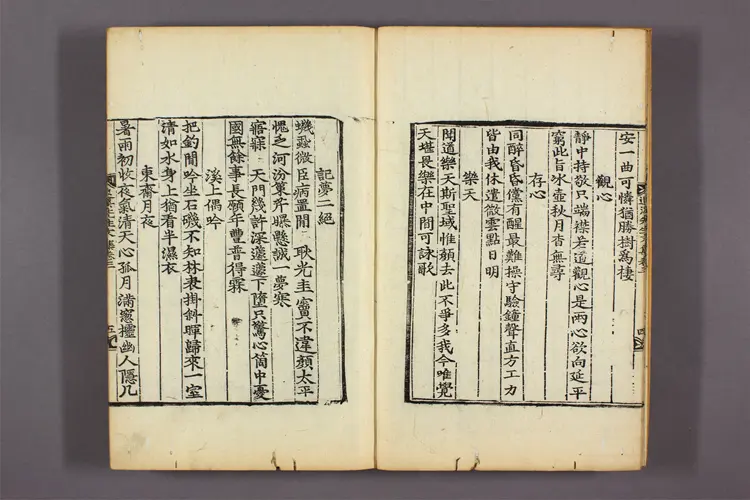 安一曲可憐猶勝樹爲棲
觀心
靜中持敬只端襟若道觀心是兩心欲向延平
窮此旨氷壺秋月杳無尋
存心
同醉昏昏儻有醒最難操守驗鐘聲直方工力
皆由我休遣微雲點日明
樂天
聞道樂天斯聖域惟顔去此不爭多我今唯覺
天堪畏樂在中間可詠歌
記夢二絶
蟣蝨微臣病置閒 耿光圭竇不違顔太平
愧乏河汾策芹曝懸誠一夢寒
寤寐 天門幾許深蘧蘧下墮只驚心箇中憂
國無餘事長願年豊普得霖
溪上偶吟
把釣閒吟坐石磯不知林表掛斜暉歸來一室
清如水身上猶看半濕衣
東齋月夜
暑雨初收夜氣清天心孤月滿窻欞幽人隱几